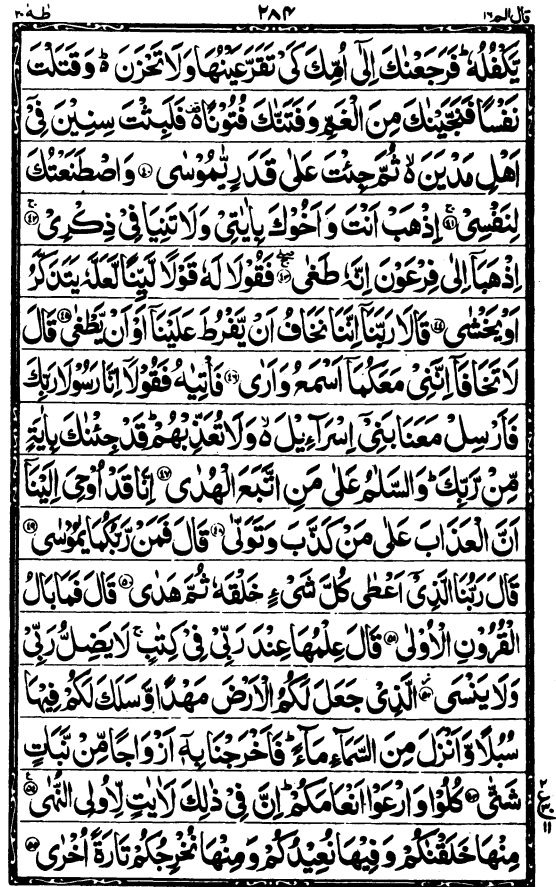 قال الم ١٦ ٢٨٤ طٰهٰ ٢٠
يَكْفُلُهٗ ؕ فَرَجَعْنٰكَ اِلٰۤى اُمِّكَ كَیْ تَقَرَّ عَيْنُهَا وَلَا تَحْزَنَ ؕ۬ وَقَتَلْتَ
نَفْسًا فَنَجَّيْنٰكَ مِنَ الْغَمِّ وَفَتَنّٰكَ فُتُوْنًا ۫۬ فَلَبِثْتَ سِنِيْنَ فِیْۤ
اَهْلِ مَدْيَنَ ۙ۬ ثُمَّ جِئْتَ عَلٰى قَدَرٍ يّٰمُوْسٰى ﴿٤٠﴾ وَاصْطَنَعْتُكَ
لِنَفْسِیْ ﴿٤١﴾ۚ اِذْهَبْ اَنْتَ وَاَخُوْكَ بِاٰيٰتِیْ وَلَا تَنِيَا فِیْ ذِكْرِیْ ﴿٤٢﴾ۚ
اِذْهَبَاۤ اِلٰى فِرْعَوْنَ اِنَّهٗ طَغٰى ﴿٤٣﴾ۚۖ فَقُوْلَا لَهٗ قَوْلًا لَّيِّنًا لَّعَلَّهٗ يَتَذَكَّرُ
اَوْ يَخْشٰى ﴿٤٤﴾ قَالَا رَبَّنَاۤ اِنَّنَا نَخَافُ اَنْ يَّفْرُطَ عَلَيْنَاۤ اَوْ اَنْ يَّطْغٰى ﴿٤٥﴾ قَالَ
لَا تَخَافَاۤ اِنَّنِیْ مَعَكُمَاۤ اَسْمَعُ وَاَرٰى ﴿٤٦﴾ فَاْتِيٰهُ فَقُوْلَاۤ اِنَّا رَسُوْلَا رَبِّكَ
فَاَرْسِلْ مَعَنَا بَنِیْۤ اِسْرَآءِيْلَ ۙ۬ وَلَا تُعَذِّبْهُمْ ؕ قَدْ جِئْنٰكَ بِاٰيَةٍ
مِّنْ رَّبِّكَ ؕ وَالسَّلٰمُ عَلٰى مَنِ اتَّبَعَ الْهُدٰى ﴿٤٧﴾ اِنَّا قَدْ اُوْحِیَ اِلَيْنَاۤ
اَنَّ الْعَذَابَ عَلٰى مَنْ كَذَّبَ وَتَوَلّٰى ﴿٤٨﴾ قَالَ فَمَنْ رَّبُّكُمَا يٰمُوْسٰى ﴿٤٩﴾
قَالَ رَبُّنَا الَّذِیْۤ اَعْطٰى كُلَّ شَیْءٍ خَلْقَهٗ ثُمَّ هَدٰى ﴿٥٠﴾ قَالَ فَمَا بَالُ
الْقُرُوْنِ الْاُوْلٰى ﴿٥١﴾ قَالَ عِلْمُهَا عِنْدَ رَبِّیْ فِیْ كِتٰبٍ ۚ لَا يَضِلُّ رَبِّیْ
وَلَا يَنْسَى ﴿٥٢﴾ؗ الَّذِیْ جَعَلَ لَكُمُ الْاَرْضَ مَهْدًا وَّسَلَكَ لَكُمْ فِيْهَا
سُبُلًا وَّاَنْزَلَ مِنَ السَّمَآءِ مَآءً ؕ فَاَخْرَجْنَا بِهٖۤ اَزْوَاجًا مِّنْ نَّبَاتٍ
شَتّٰى ﴿٥٣﴾ كُلُوْا وَارْعَوْا اَنْعَامَكُمْ ؕ اِنَّ فِیْ ذٰلِكَ لَاٰيٰتٍ لِّاُولِی النُّهٰى ﴿٥٤﴾ع
مِنْهَا خَلَقْنٰكُمْ وَفِيْهَا نُعِيْدُكُمْ وَمِنْهَا نُخْرِجُكُمْ تَارَةً اُخْرٰى ﴿٥٥﴾